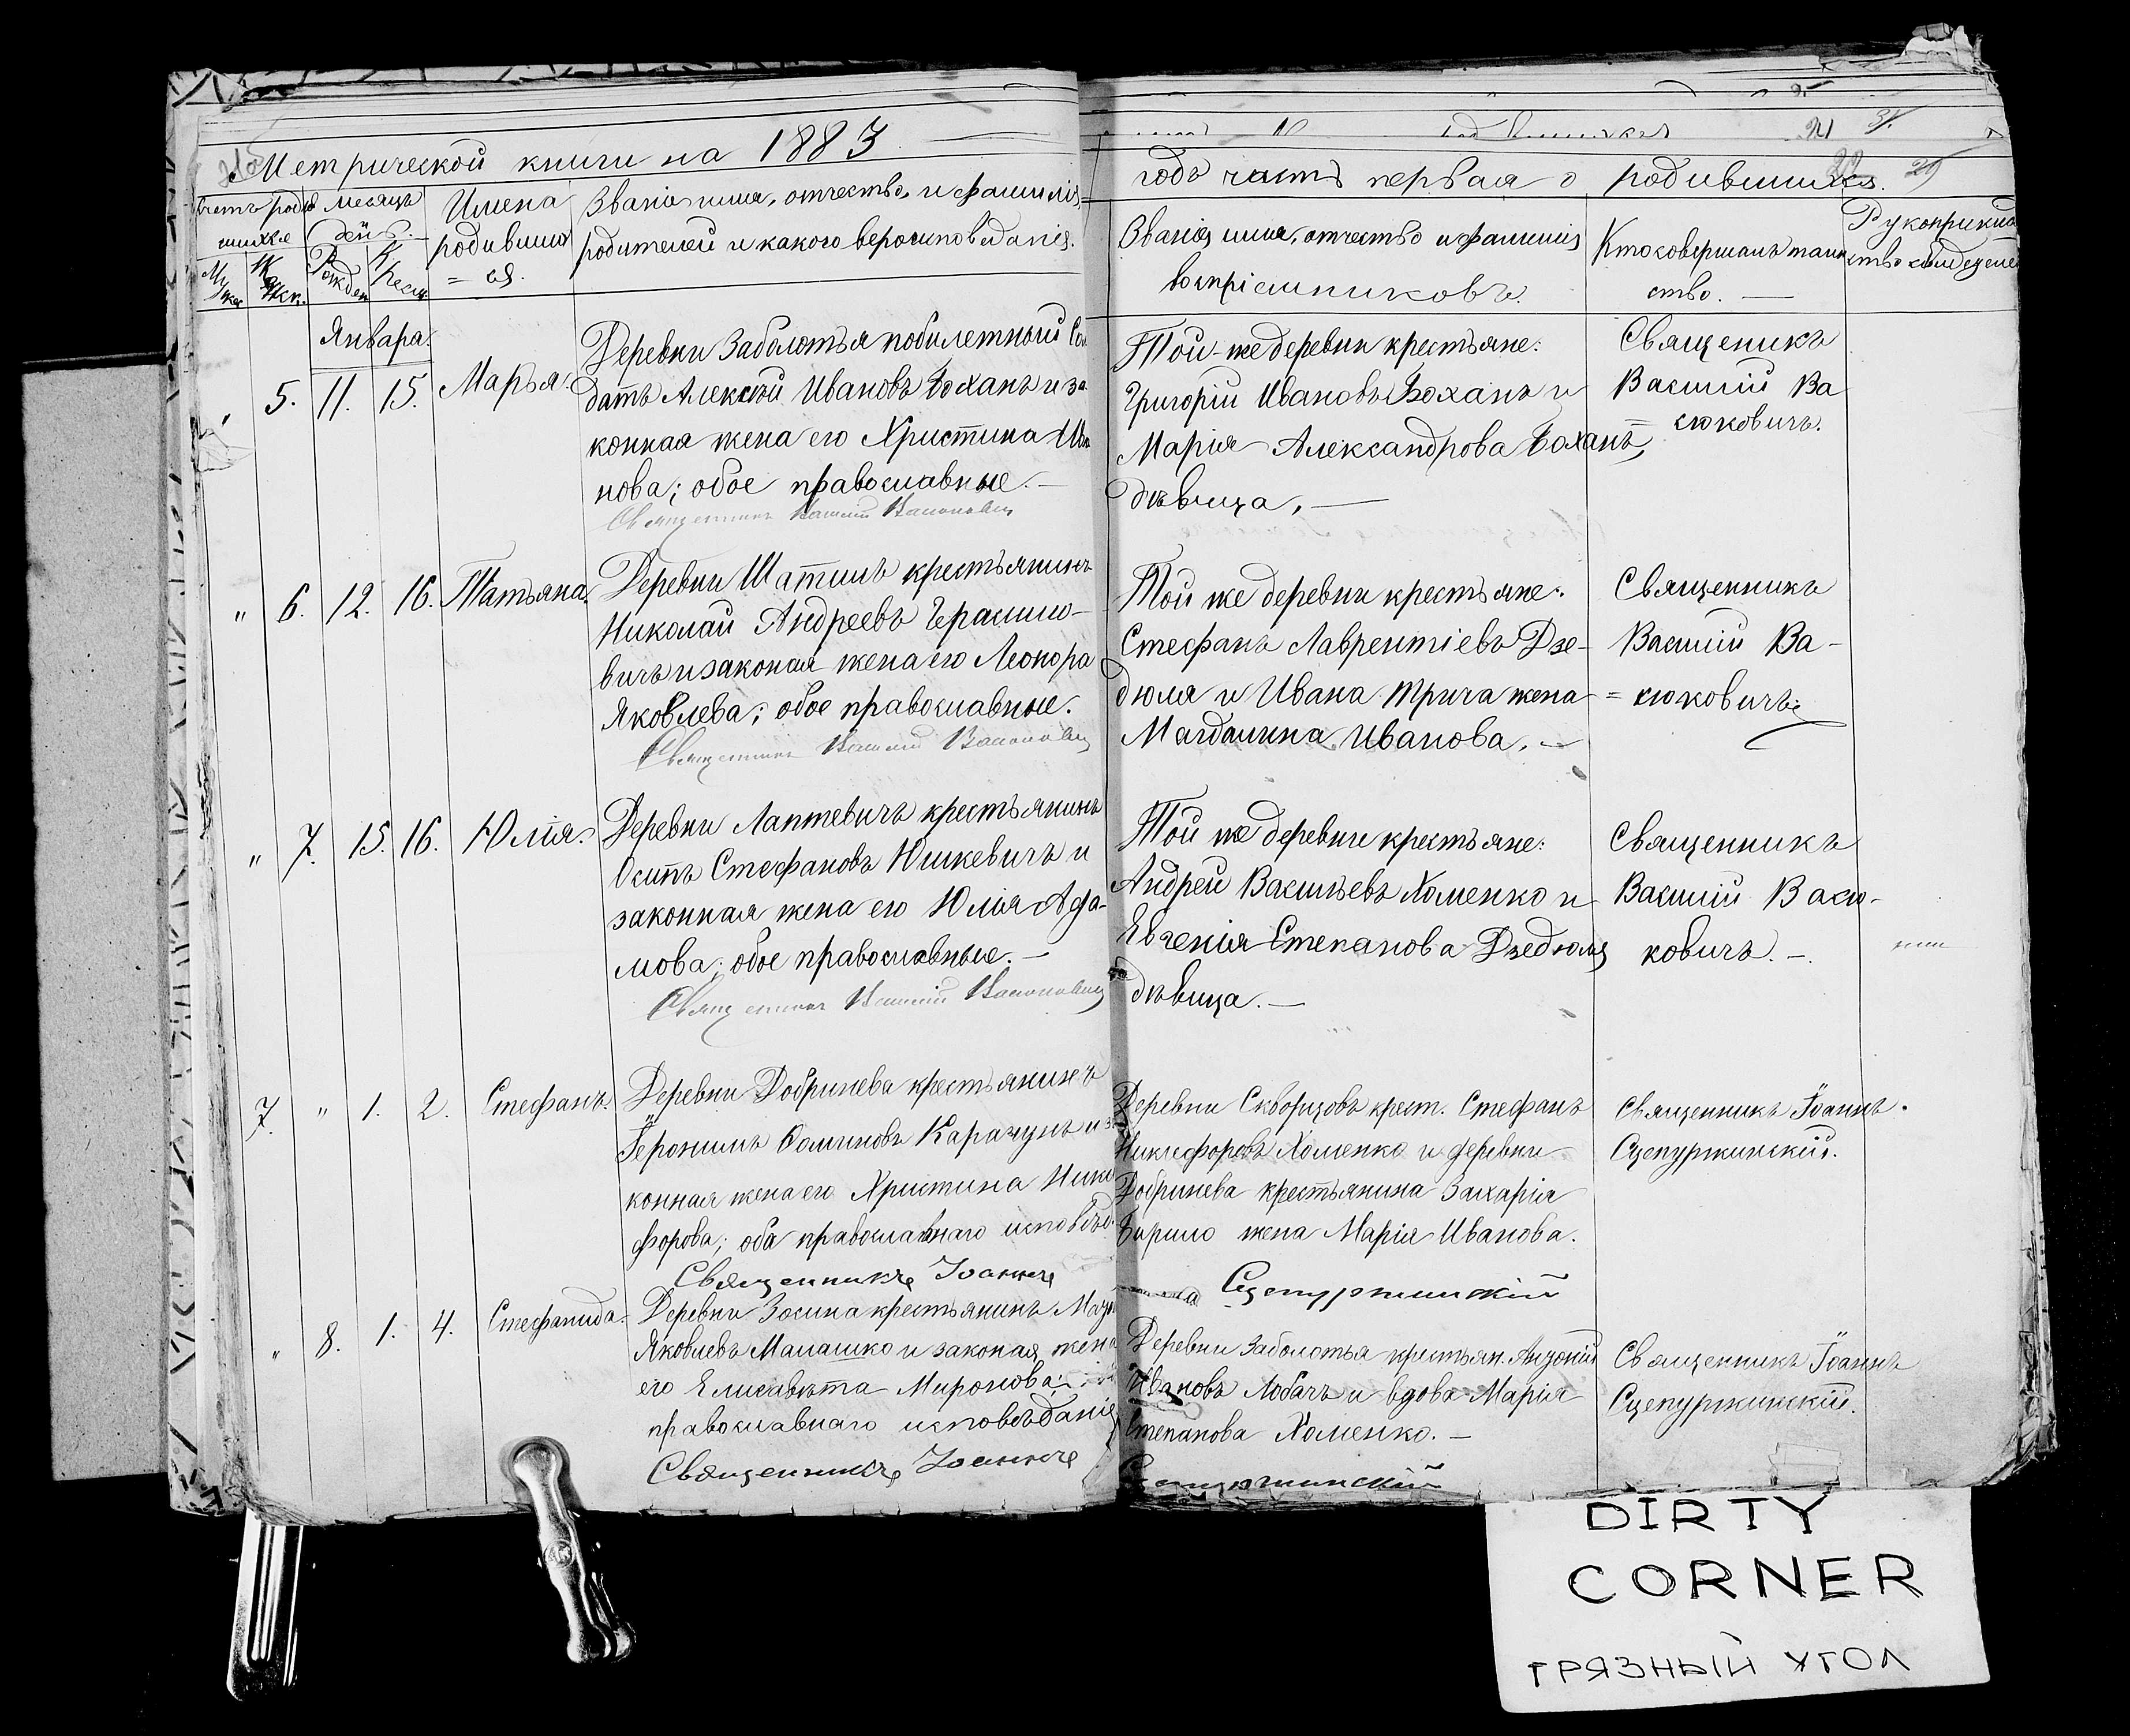 Метрической книги на 1883
годъ часть первая о родившихся.
21
31.
29
Счетъ роди
шихся
Муж.
Жен.
Месяцъ
день.
Рожден
Крещ.
Имена
родивших
= ся.
Званіе имя, отчество, и фамилія
родителей и какого вероисповеданія.
Званія имя, отчество и фамилія
воспріемниковъ.
Кто совершалъ таин
ство. —
Рукоприклад
ство свидетеле
Января.
„
5.
11.
15.
Марья.
Деревни Заболотья побилетный Сол
датъ Алексѣй Ивановъ Боханъ и за
конная жена его Христина Ива
нова; обое православные. —
Священникъ Василій Васюковичъ
Той-же деревни крестьяне:
Григорій Ивановъ Боханъ и
Марія Александрова Боханъ,
дѣвица. —
Священикъ
Василій Ва
= сюковичъ.
„
6.
12.
16.
Татьяна.
Деревни Шатилъ крестьянинъ
Николай Андреевъ Герасимо-
вичъ и законая жена его Леонора
Яковлева; обое православные.
Священникъ Василій Васюковичъ
Той же деревни крестьяне:
Стефанъ Лаврентіевъ Дзе-
дюля и Ивана Трича жена
Магдалина Иванова. —
Священникъ
Василій Ва-
= сюковичъ.
„
7.
15.
16.
Юлія.
Деревни Лаптевичъ крестьянинъ
Осипъ Стефановъ Юшкевичъ и
законная жена его Юлія Ада-
мова; обое православные. —
Священникъ Василій Васюковичъ
Той же деревни крестьяне:
Андрей Васильевъ Хоменко и
Евгенія Степанова Дзедюля
дѣвица. —
Священникъ
Василій Васю-
ковичъ. —.
7.
„
1.
2.
Стефанъ.
Деревни Добринева крестьянинъ
Іеронимъ Фоминовъ Карачунъ и за
конная жена его Христина Ники
форова; оба православнаго исповѣд.
Священникъ Іоаннъ
Деревни Скворцовъ крест. Стефанъ
Никифоровъ Хоменко и деревни
Добринева крестьянина Захарія
Бирило жена Марія Иванова.
Сцепуржинскій
Священникъ Іоаннъ.
Сцепуржинскій.
„
8.
1.
4.
Стефанида.
Деревни Зосина крестьянинъ
Яковлевъ Малашко и законая жена
его Елисавѣта Миронова;
православнаго исповѣданія
Священникъ Іоаннъ
Деревни Заболотья крестьян. Антоній
Ивановъ Лобачъ и вдова Марія
Степанова Хоменко. —
Сцепуржинскій
Священникъ Іоаннъ
Сцепуржинскій.
DIRTY
CORNER
ГРЯЗНЫЙ УГОЛ